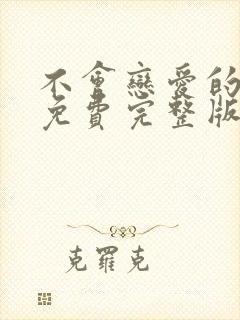 不會戀愛的
免費完整版
克羅克